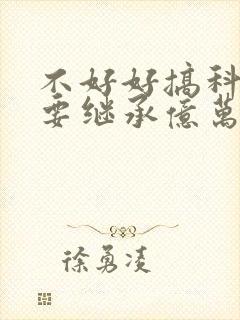 不好好搞科
要继承億萬
徐勇凌